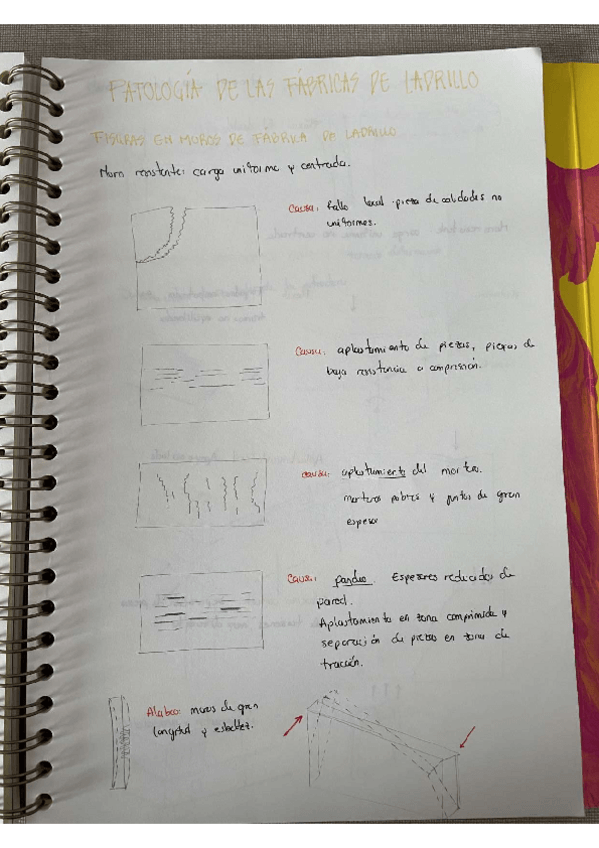 PATOLOGÍA DE LAS FÁBRICAS DE LADRILLO
FISURAS EN MUROS DE FÁBRICA DE LADRILLO
Muro resistente: carga uniforme y centrada.
Causa: fallo local pieza de calidades no
uniformes.
Causa: aplastamiento de piezas, piezas de
baja resistencia a compresión.
causa: aplastamiento del mortero.
morteros pobres y juntas de gran
espesor
Causa: pandeo. Espesores reducidos de
pared.
Aplastamiento en zona comprimida y
separación de piezas en zona de
tracción.
Alabeo: muros de gran
longitud y esbeltez.